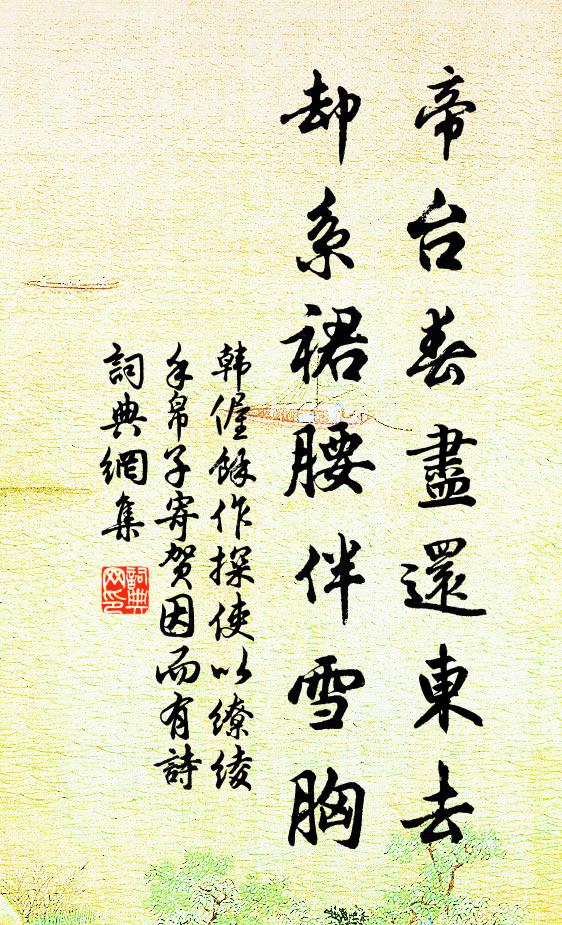 帝台春盡還東去
却系裙腰伴雪胸
韩偓餘作探使以繚綾
手帛子寄贺因而有詩
詞典網集
詞典
网印